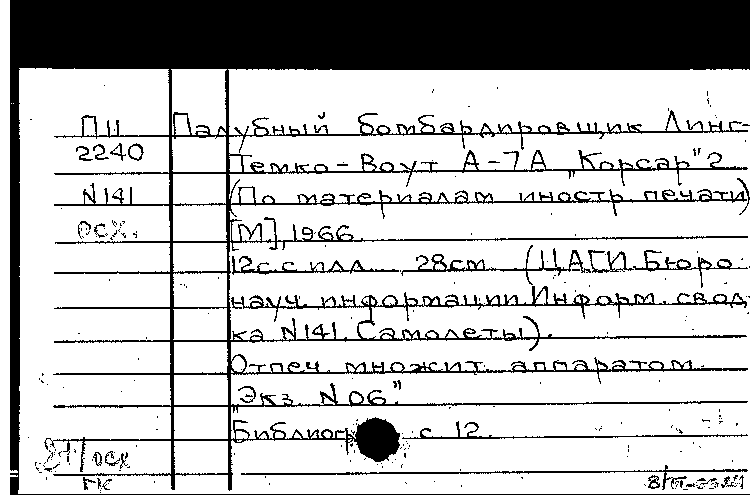 П11 Палубный бомбардировщик Линг-
2240 Темко-Воут А-7А „Корсар" 2
N141 (По материалам иностр. печати)
осх. [М.], 1966.
12с. с илл. 28см (ЦАГИ. Бюро
науч. информации. Информ. свод-
ка N141. Самолеты).
Отпеч. множит. аппаратом.
„Экз. N06."
Библиогр. с 12.
осх
ГК